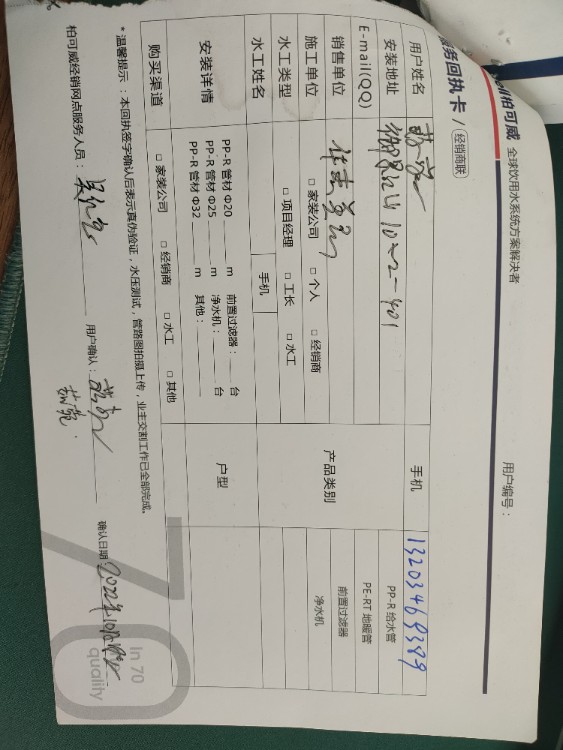 柏可威 全球饮用水系统方案解决者
服务回执卡 / 经销商联
用户编号：
用户姓名 手机 13203469389
安装地址 10-2-401 PP-R 给水管
E-mail(QQ) PE-RT 地暖管
销售单位 产品类别 前置过滤器
施工单位 □ 家装公司 □ 个人 □ 经销商 净水机
水工类型 □ 项目经理 □ 工长 □ 水工
水工姓名 手机
安装详情 PP-R 管材 Φ20 m 前置过滤器： 台 户型
PP-R 管材 Φ25 m 净水机： 台
PP-R 管材 Φ32 m 其他：
购买渠道 □ 家装公司 □ 经销商 □ 水工 □ 其他
*温馨提示：本回执签字确认后表示真伪验证，水压测试，管路图拍摄上传，业主交割工作已全部完成。
柏可威经销网点服务人员： 用户确认： 确认日期：
70
In 70
quality